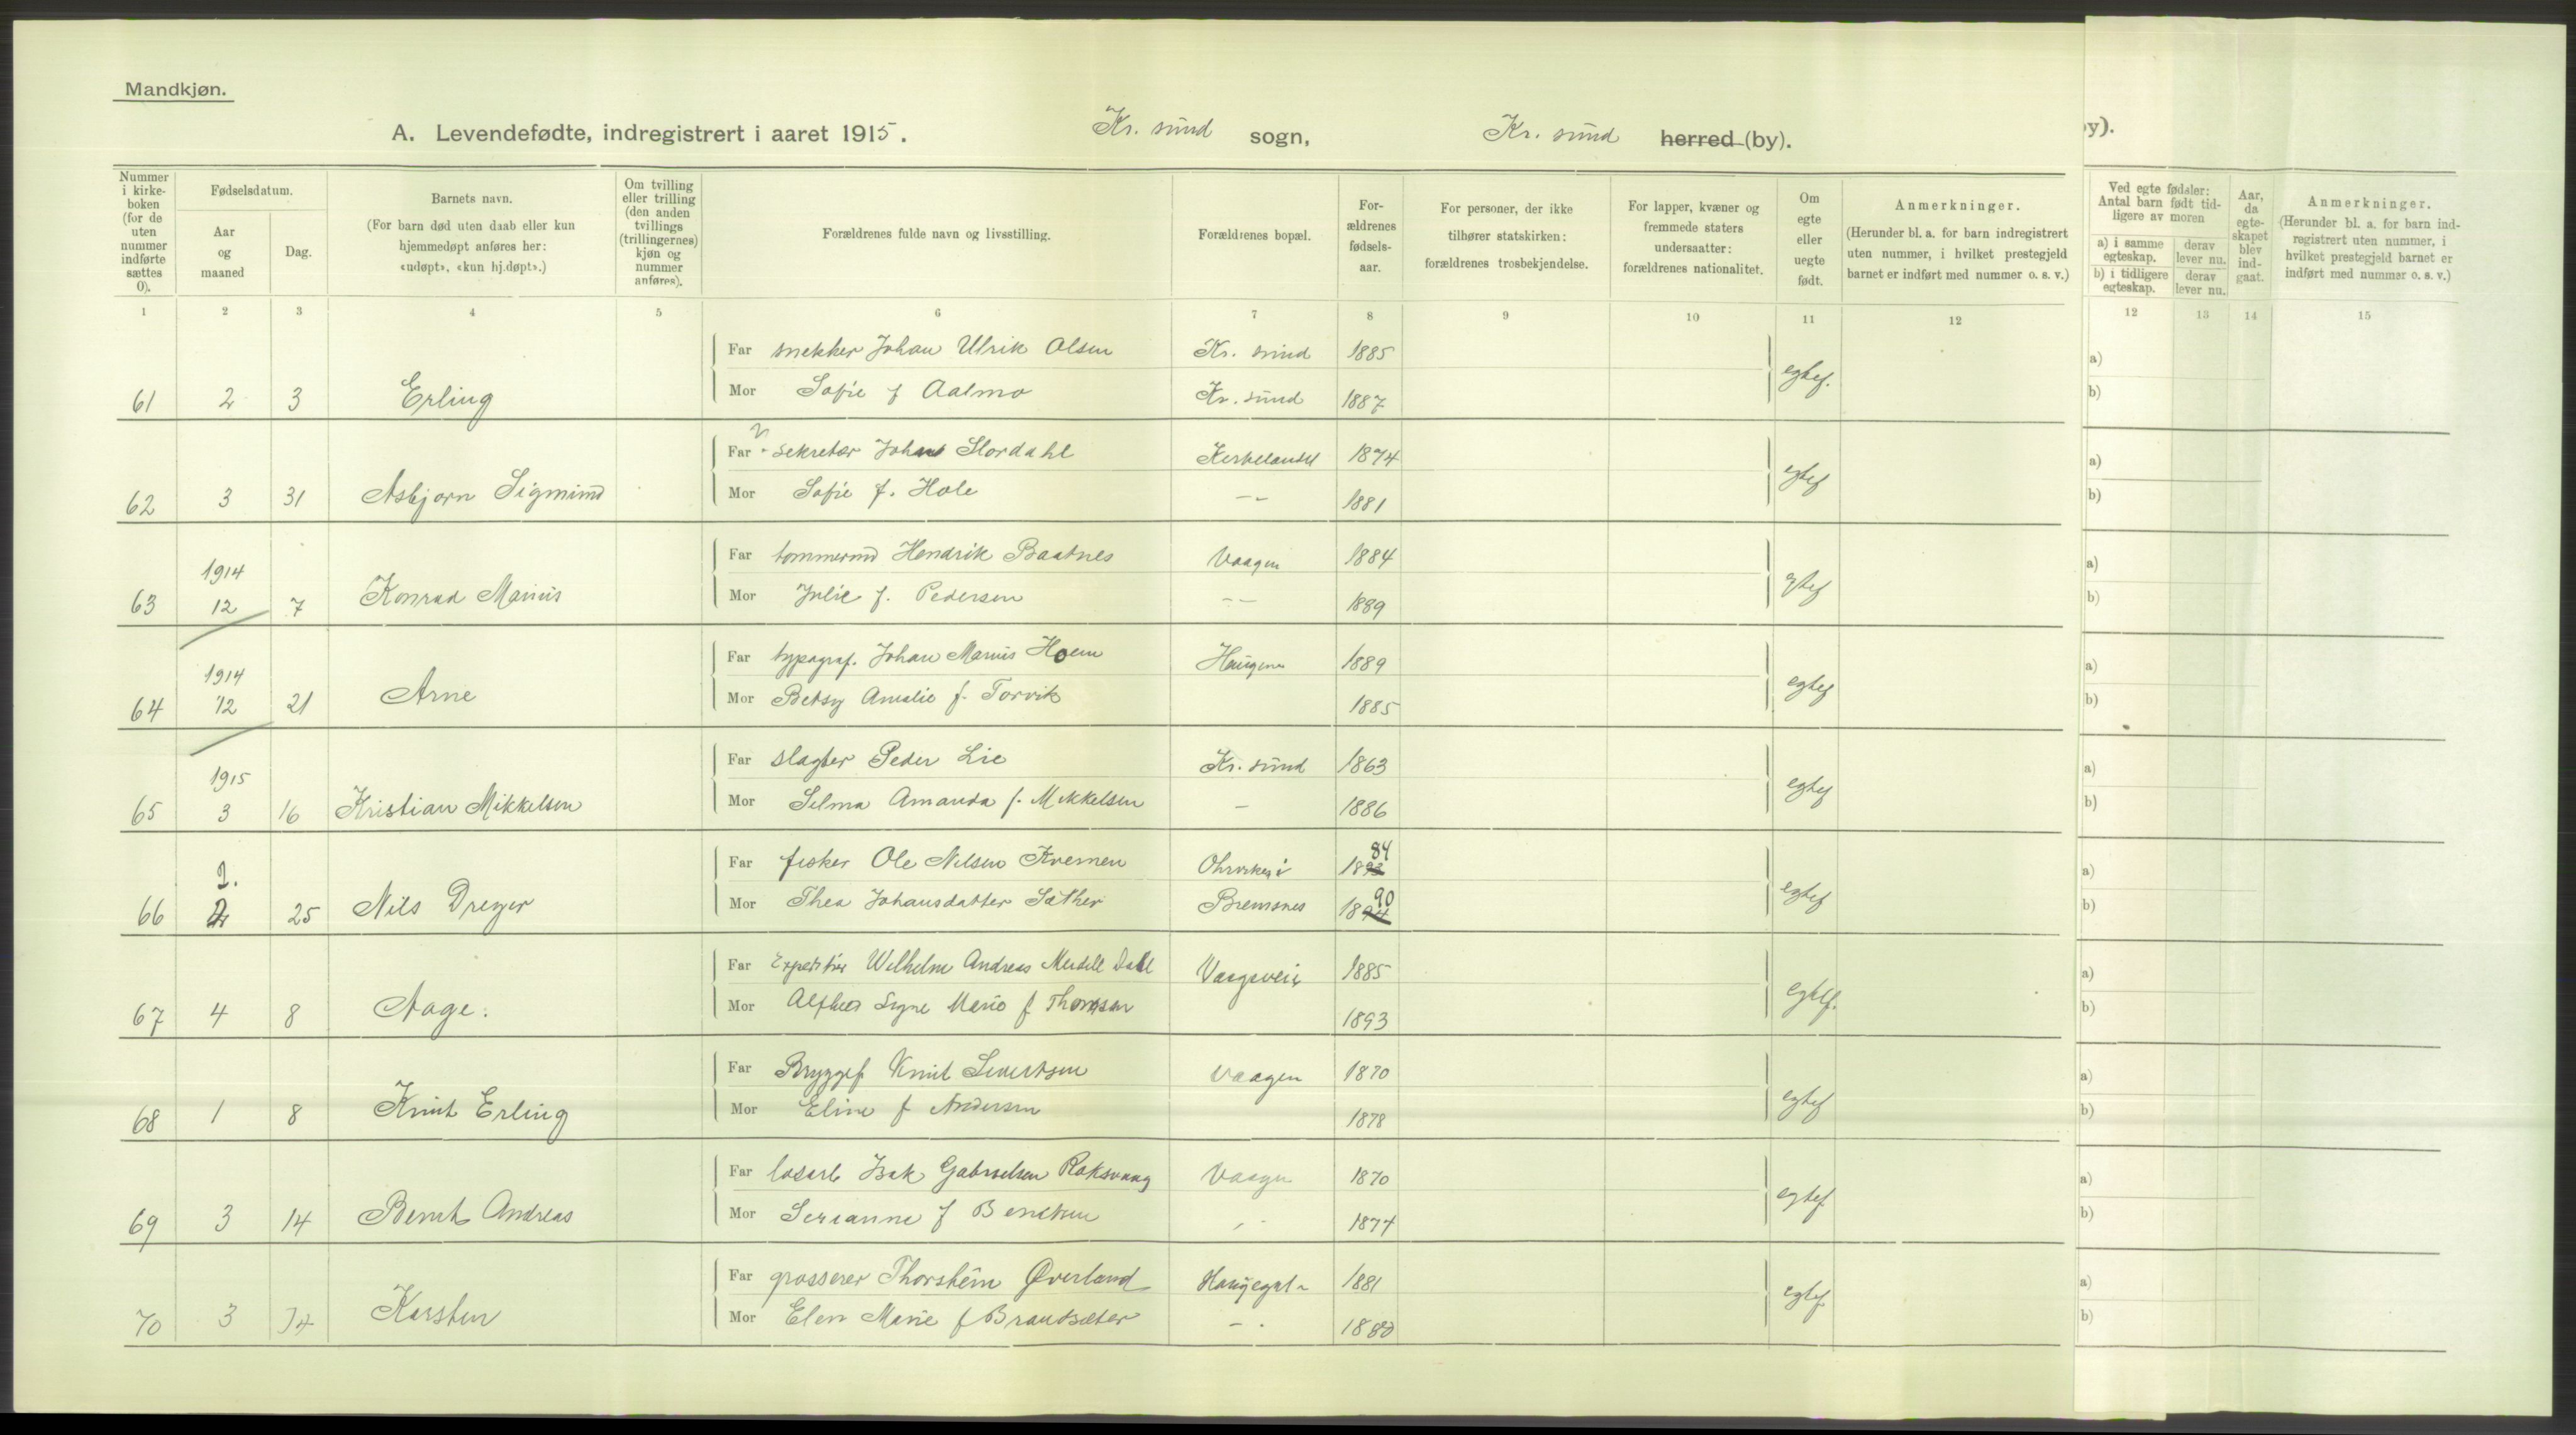 Mandkjøn.
A. Levendefødte, indregistrert i aaret 1915. Kr. sund sogn, Kr. sund herred (by).
y).
Nummer i kirkeboken (for de uten nummer indførte sættes 0).
Fødselsdatum.
Aar og maaned
Dag.
Barnets navn.
(For barn død uten daab eller kun hjemmedøpt anføres her: «udøpt», «kun hj.døpt».)
Om tvilling eller trilling (den anden tvillings (trillingernes) kjøn og nummer anføres).
Forældrenes fulde navn og livsstilling.
Forældrenes bopæl.
Forældrenes fødselsaar.
For personer, der ikke tilhører statskirken: forældrenes trosbekjendelse.
For lapper, kvæner og fremmede staters undersaatter: forældrenes nationalitet.
Om egte eller uegte født.
Anmerkninger.
(Herunder bl. a. for barn indregistrert uten nummer, i hvilket prestegjeld barnet er indført med nummer o. s. v.)
Ved egte fødsler: Antal barn født tidligere av moren
a) i samme egteskap.
derav lever nu.
b) i tidligere egteskap.
derav lever nu.
Aar, da egteskapet blev indgaat.
Anmerkninger.
(Herunder bl. a. for barn indregistrert uten nummer, i hvilket prestegjeld barnet er indført med nummer o. s. v.)
1 2 3 4 5 6 7 8 9 10 11 12 12 13 14 15
Far snekker Johan Ulrik Olsen Kr. sund 1885 a)
61 2 3 Erling Mor Sofie f Aalmo Kr. sund 1887 egtef. b)
Far sekretær Johan Stordahl Kirkelandet 1874 a)
62 3 31 Asbjørn Sigmund Mor Sofie f. Hole -"- 1881 egtef b)
Far tømmermd Hendrik Baatnes Vaagen 1884 a)
63 1914 12 7 Konrad Marius Mor Julie f. Pedersen -"- 1889 egtef b)
Far typograf. Johan Marius Hoem Haugen 1889 a)
64 1914 12 21 Arne Mor Betsy Amalie f. Torvik 1885 egtef b)
Far slagter Peder Lie Kr. sund 1863 a)
65 1915 3 16 Kristian Mikkelsen Mor Selma Amanda f. Mikkelsen - 1886 egtef b)
Far fisker Ole Nilsen Kvernen 1893 84 a)
66 2. 2 25 Nils Dreyer Mor Thea Johansdatter Sæther Bremsnes 1894 90 egtef b)
Far Expeditør Wilhelm Andreas Meidell Dahl Vaagevei 1885 a)
67 4 8 Aage. Mor Signe Marie f Thomsen 1893 egtef. b)
Far Bryggef Knut Sivertsen Vaagen 1870 a)
68 1 8 Knut Erling Mor Eline f Andersen 1878 egtef b)
Far løsarb Isak Gabrielsen Roksvaag Vaagen 1870 a)
69 3 14 Bernt Andreas Mor Serianne f Bentsen - 1874 egtef b)
Far grosserer Thorstein Øverland Haugegat 1881 a)
70 3 14 Karsten Mor Elen Marie f Brandsæter -"- 1880 egtef. b)